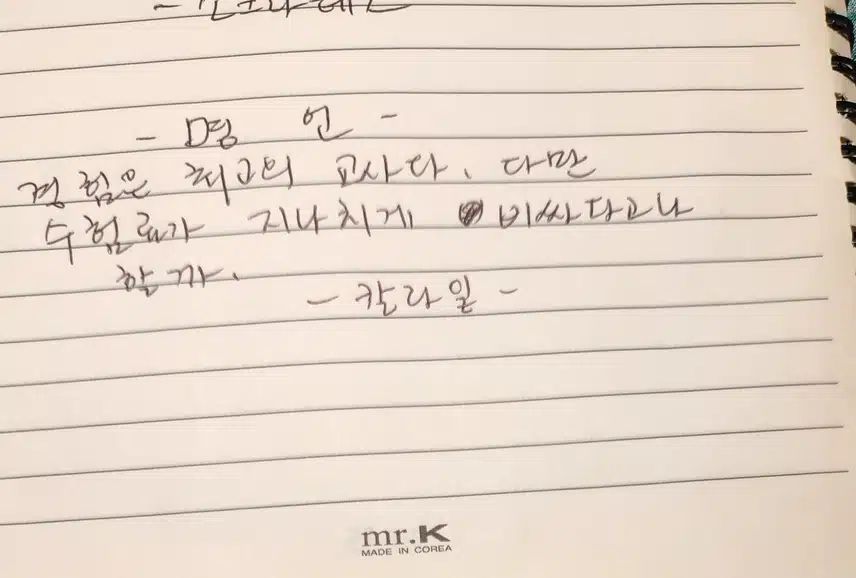 - 명 언 -
경험은 최고의 교사다. 다만
수험료가 지나치게 비싸다고나
할까.
- 칼라일 -
mr.K
MADE IN COREA